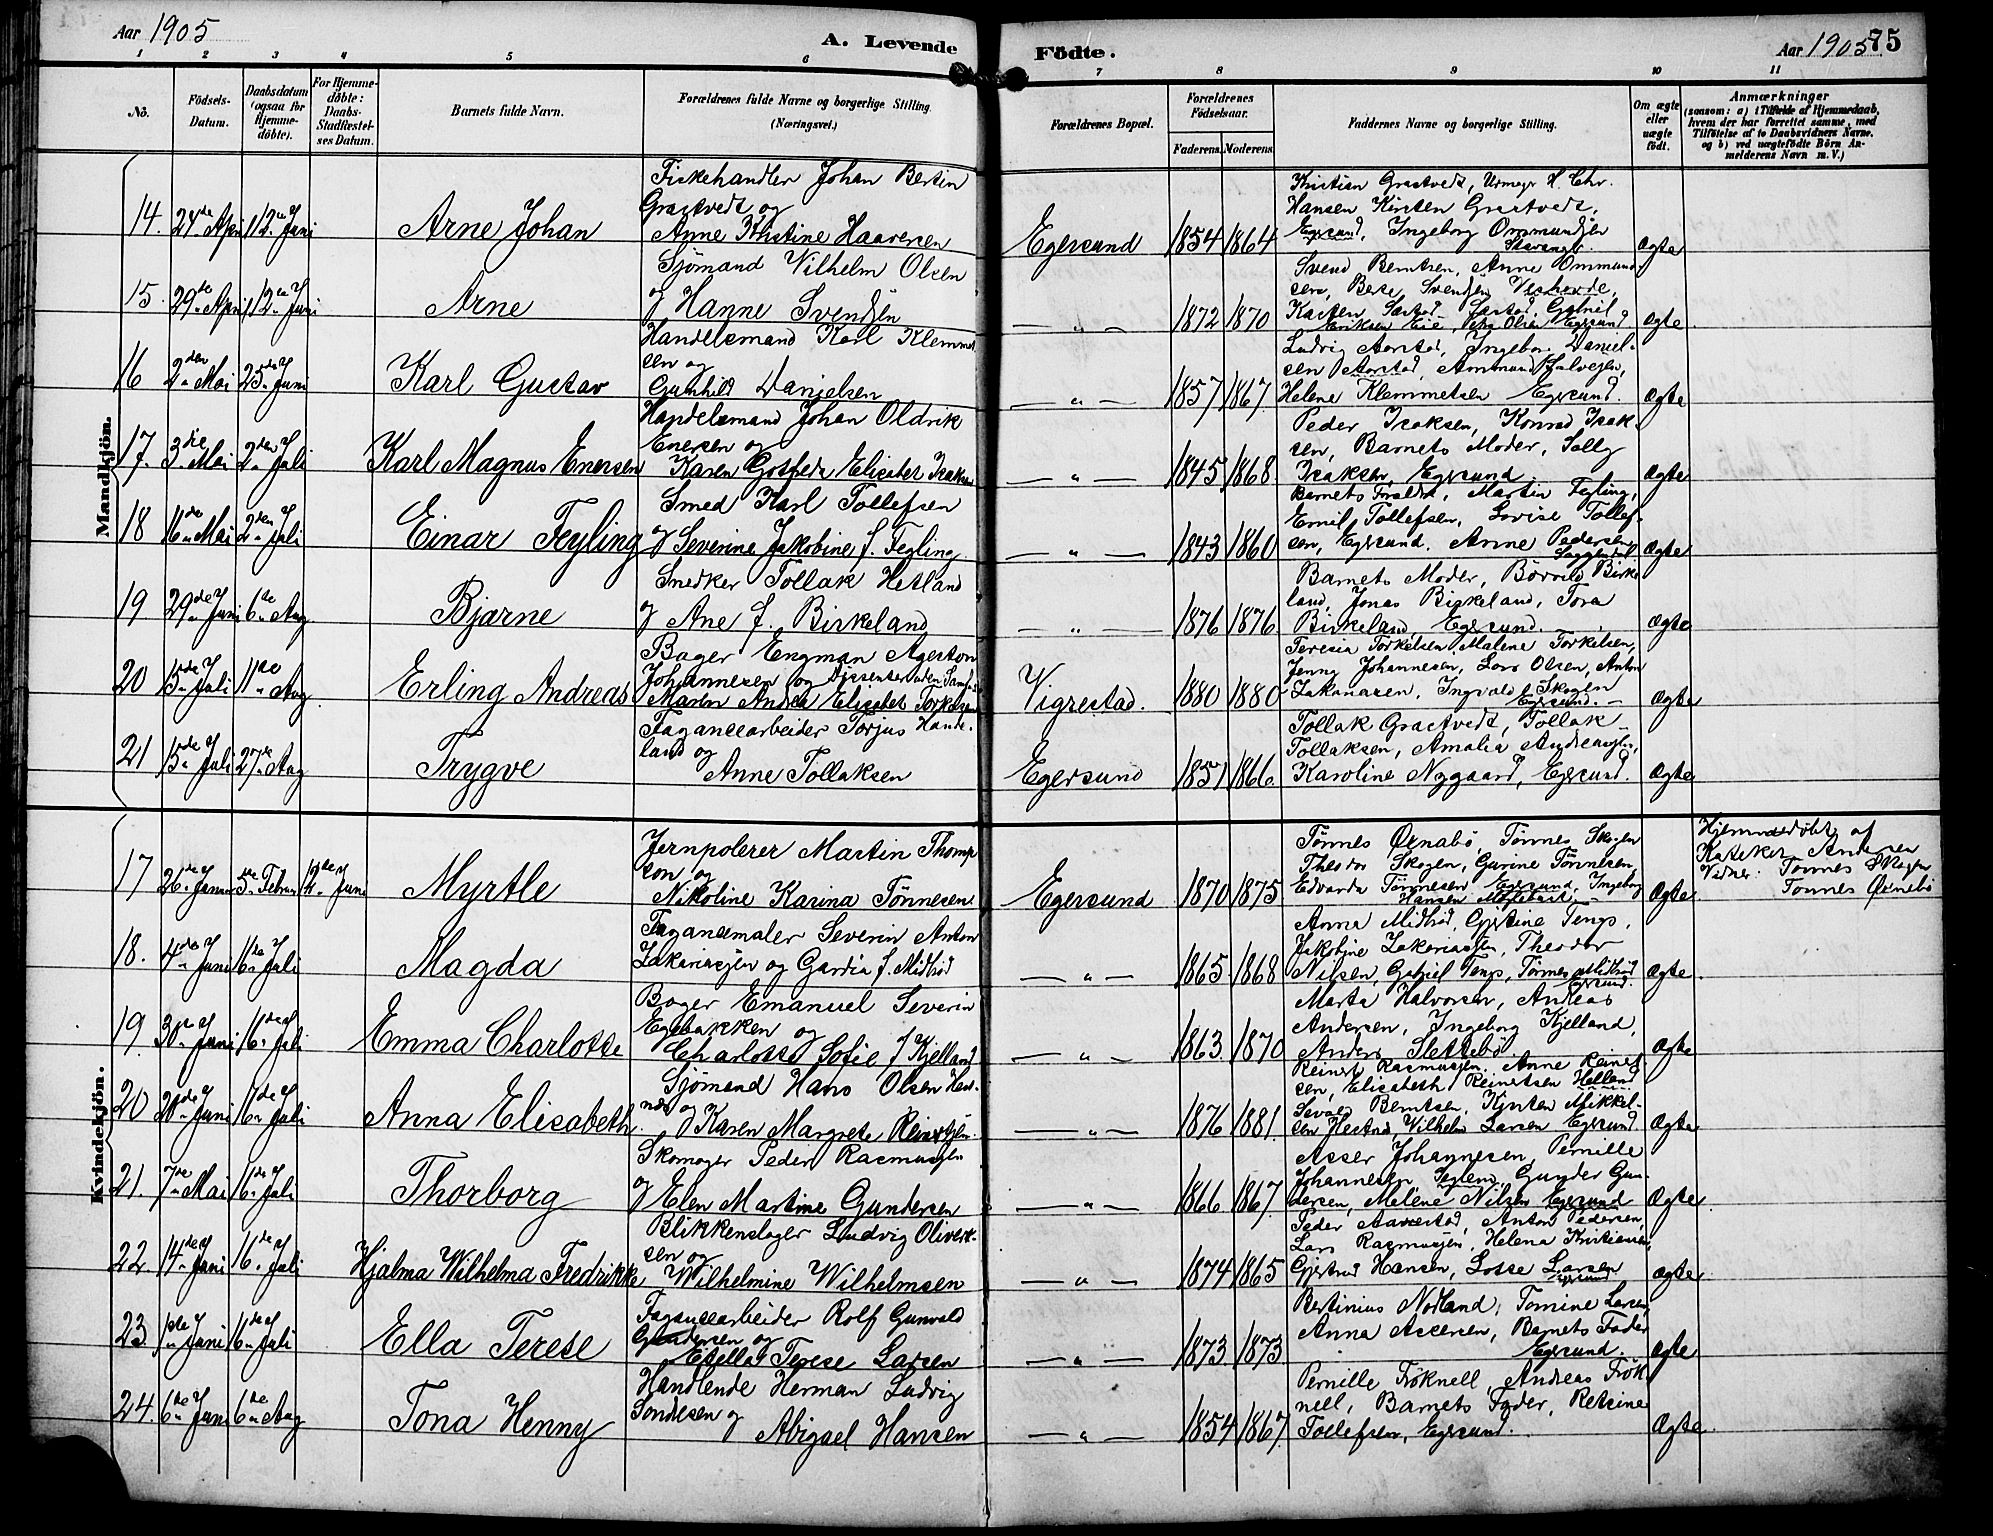 Aar 1905
A. Levende
Födte.
Aar 1905
75
1 2 3 4 5 6 7 8 9 10 11
No.
Födsels-
Datum.
Daabsdatum
(ogsaa for
Hjemme-
döbte).
For Hjemme-
döbte:
Daabs-
Stadfæstel-
ses Datum.
Barnets fulde Navn.
Forældrenes fulde Navne og borgerlige Stilling.
(Næringsvei.)
Forældrenes Bopæl.
Forældrenes
Födselsaar.
Faderens. Moderens
Faddernes Navne og borgerlige Stilling.
Om ægte
eller
uægte
födt.
Anmærkninger
(saasom: a) i Tilfælde af Hjemmedaab,
hvem der har forrettet samme, med
Tilföielse af to Daabsvidners Navne,
og b) ved uægtefödte Börn An-
melderens Navn m. V.)
Mandkjön.
14. 24de April 12te Juni
Arne Johan
Fiskehandler Johan Bertin
Graatvedt og
Anne Kristine Haaversen
Egersund 1854 1864
Kristian Graatvedt, Urmagr H. Chr.
Hansen Kirsten Graatvedt,
Egersund, Ingeborg Ommundsen
Stavanger.
Ægte
15. 29de April 12te Juni
Arne
Sjömand Vilhelm Olsen
og Hanne Svendsen
— " — 1872 1870
Svend Berntsen, Anne Ommund
sen, Berte Svendsen
Eriksen Eie, Olsen Egersund
Ægte
16 2den Mai 25de Juni
Karl Gustav
Handelsmand Karl Klemmet
sen og
Gunhild Danielsen
— " — 1857 1867
Ludvig Aarstad, Ingebor. Daniel-
sen Aarstad,
Helene Klemmetsen Egersund.
Ægte
17. 3die Mai 2den Juli
Karl Magnus Enersen
Handelsmand Johan Oldrik
Enersen og
Karen Gotfrede Elisabet Isaksen
— " — 1845 1868
Peder Isaksen, Konrad Isak-
sen, Barnets Moder, Solly
Isaksen, Egersund
Ægte
18 16de Mai 2den Juli
Einar Fegling
Smed Karl Tollefsen
og Severine Jakobine f. Fegling
— " — 1843 1860
Barnets Forældre, Martin Fegling,
Emil Tollefsen, Lovise Tollef-
sen, Egersund. Anne Pedersen
Soggendal
Ægte
19 29de Juni 6te Aug
Bjarne
Snedker Tollak Hetland
og Ane f. Birkeland
— " — 1876 1876
Barnets Moder, Börvild Birke
land, Jonas Birkeland, Tora
Birkeland Egersund.
Ægte
20 15de Juli 11te Aug
Erling Andreas
Bager Engman Ageton
Johannesen og
Maren Andrea Elisabet Torkelsen
Vigrestad. 1880 1880
Teresia Torkelsen Malene Torkelsen,
Jenny Johannesen, Lars Olsen, Anton
Zakariasen, Ingvald Skogen
Egersund.
Ægte
21 15de Juli 27de Aug
Trygve
Fagancearbeider Torjus Hande-
land og
Anne Tollaksen
Egersund 1851 1866
Tollak Graatvedt, Tollak
Tollaksen, Amalia Andreasen,
Karoline Nygaard, Egersund.
Ægte
Kvindekjön.
17 26de Januar 5te Februar 12te Juni
Myrtle
Jernpolerer Martin Thomp
son og
Nikoline Karina Tönnesen
Egersund 1870 1875
Tönnes Ørnebö, Tönnes Skogen
Theodor Skogen, Gurine Tönnesen
Edvarda Tönnesen Egersund, Ingeborg
Hansen
Ægte
Hjemmedöbt af
Kateket Andersen
Vidner: Tönnes Skogen
Tönnes Ørnebö
18. 4de Juni 16de Juli
Magda
Fagancemaler Severin Anton
Zakariassen og Gardia f. Midbröd
— " — 1865 1868
Anna Midbröd, Gjertine Tengs,
Jakobine Zakariassen, Theodor
Nilsen, Gabriel Tengs, Tönnes Midbröd
Egersund.
Ægte
19. 3die Juni 16de Juli
Emma Charlotte
Bager Emanuel Severin
Egebakken og
Charlotte Sofie f Kjelland
— " — 1863 1870
Marta Halvorsen, Andreas
Andersen, Ingeborg Kjelland,
Anders Slettebö
Ægte
20 28de Juni 16de Juli
Anna Elisabeth
Sjömand Hans Olsen Hest-
nes og
Karen Margrete Reinertsen.
— " — 1876 1881
Reinert Rasmussen, Anne Reinert
sen, Elisabeth Reinertsen Helland
Sevald Berntsen, Kirsten Mikkel-
sen Hestnes Wilhelm Larsen Egersund
Ægte
21. 7de Mai 16de Juli
Thorborg
Skomager Peder Rasmussen
og Elen Martine Gundersen
— " — 1866 1867
Asser Johannesen, Pernille
Johannesen Gunder Gun-
dersen, Melene Nilsen Egersund
Ægte
22. 14de Juni 16de Juli
Hjalma Wilhelma Fredrikke
Blikkenslager Ludvig Olivert-
sen og
Wilhelmine Wilhelmsen
— " — 1874 1865
Peder Aarrestad, Anton Pedersen,
Lars Rasmussen, Helena Kristiansen,
Gjertrud Hansen, Lotte Larsen
Egersund
Ægte
23. 1ste Juni 16de Juli
Ella Terese
Fagancearbeider Rolf Gunvald
Gundersen og
Estella Terese Larsen
— " — 1873 1873
Bertinius Nodland, Tomine Larsen
Anna Assersen, Barnets Fader
Egersund.
Ægte
24. 6te Juni 6te Aug
Tona Henny
Handlende Herman Ludvig
Tondesen og
Abigael Hansen
— " — 1854 1867
Pernille Fröknell, Andreas Frök
nell, Barnets Fader, Retsine
Tollefsen, Egersund.
Ægte